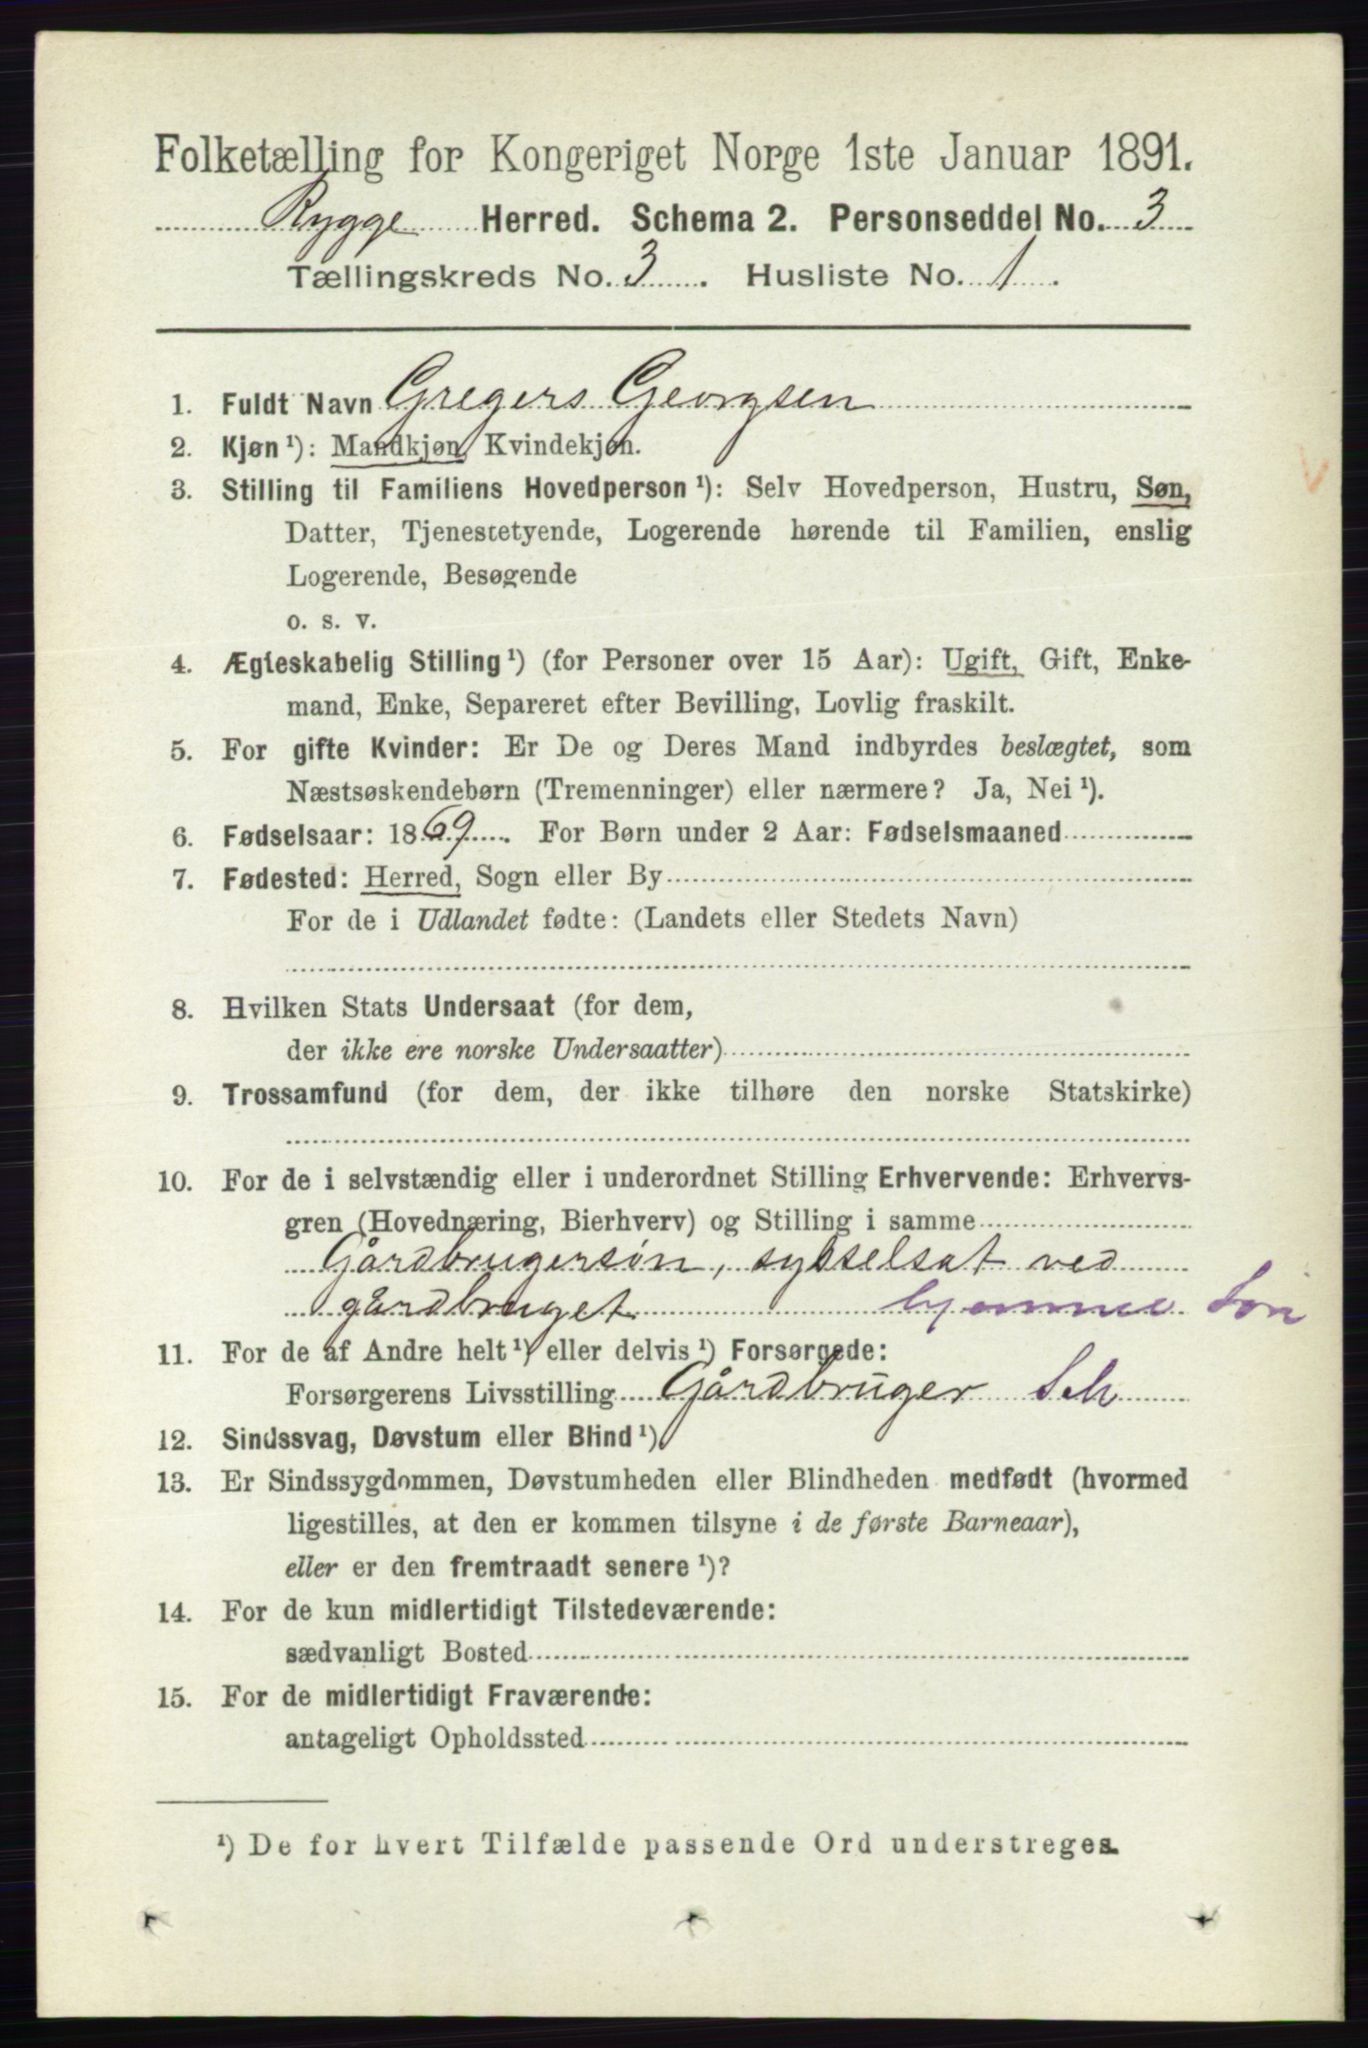 Folketælling for Kongeriget Norge 1ste Januar 1891.
Rygge Herred. Schema 2. Personseddel No. 3
Tællingskreds No. 3. Husliste No. 1.
1. Fuldt Navn Gregers Georgsen
2. Kjøn ¹): Mandkjøn, Kvindekjøn.
V
3. Stilling til Familiens Hovedperson ¹): Selv Hovedperson, Hustru, Søn,
Datter, Tjenestetyende, Logerende hørende til Familien, enslig
Logerende, Besøgende
o. s. v.
4. Ægteskabelig Stilling ¹) (for Personer over 15 Aar): Ugift, Gift, Enke-
mand, Enke, Separeret efter Bevilling, Lovlig fraskilt.
5. For gifte Kvinder: Er De og Deres Mand indbyrdes beslægtet, som
Næstsøskendebørn (Tremenninger) eller nærmere? Ja, Nei ¹).
6. Fødselsaar: 1869. For Børn under 2 Aar: Fødselsmaaned
7. Fødested: Herred, Sogn eller By
For de i Udlandet fødte: (Landets eller Stedets Navn)
8. Hvilken Stats Undersaat (for dem,
der ikke ere norske Undersaatter)
9. Trossamfund (for dem, der ikke tilhøre den norske Statskirke)
10. For de i selvstændig eller i underordnet Stilling Erhvervende: Erhvervs-
gren (Hovednæring, Bierhverv) og Stilling i samme
Gårdbrugersøn, sysselsat ved
gårdbruget hjemme Søn
11. For de af Andre helt ¹) eller delvis ¹) Forsørgede:
Forsørgerens Livsstilling Gårdbruger Selv
12. Sindssvag, Døvstum eller Blind ¹).
13. Er Sindssygdommen, Døvstumheden eller Blindheden medfødt (hvormed
ligestilles, at den er kommen tilsyne i de første Barneaar),
eller er den fremtraadt senere ¹)?
14. For de kun midlertidigt Tilstedeværende:
sædvanligt Bosted
15. For de midlertidigt Fraværende:
antageligt Opholdssted
¹) De for hvert Tilfælde passende Ord understreges.